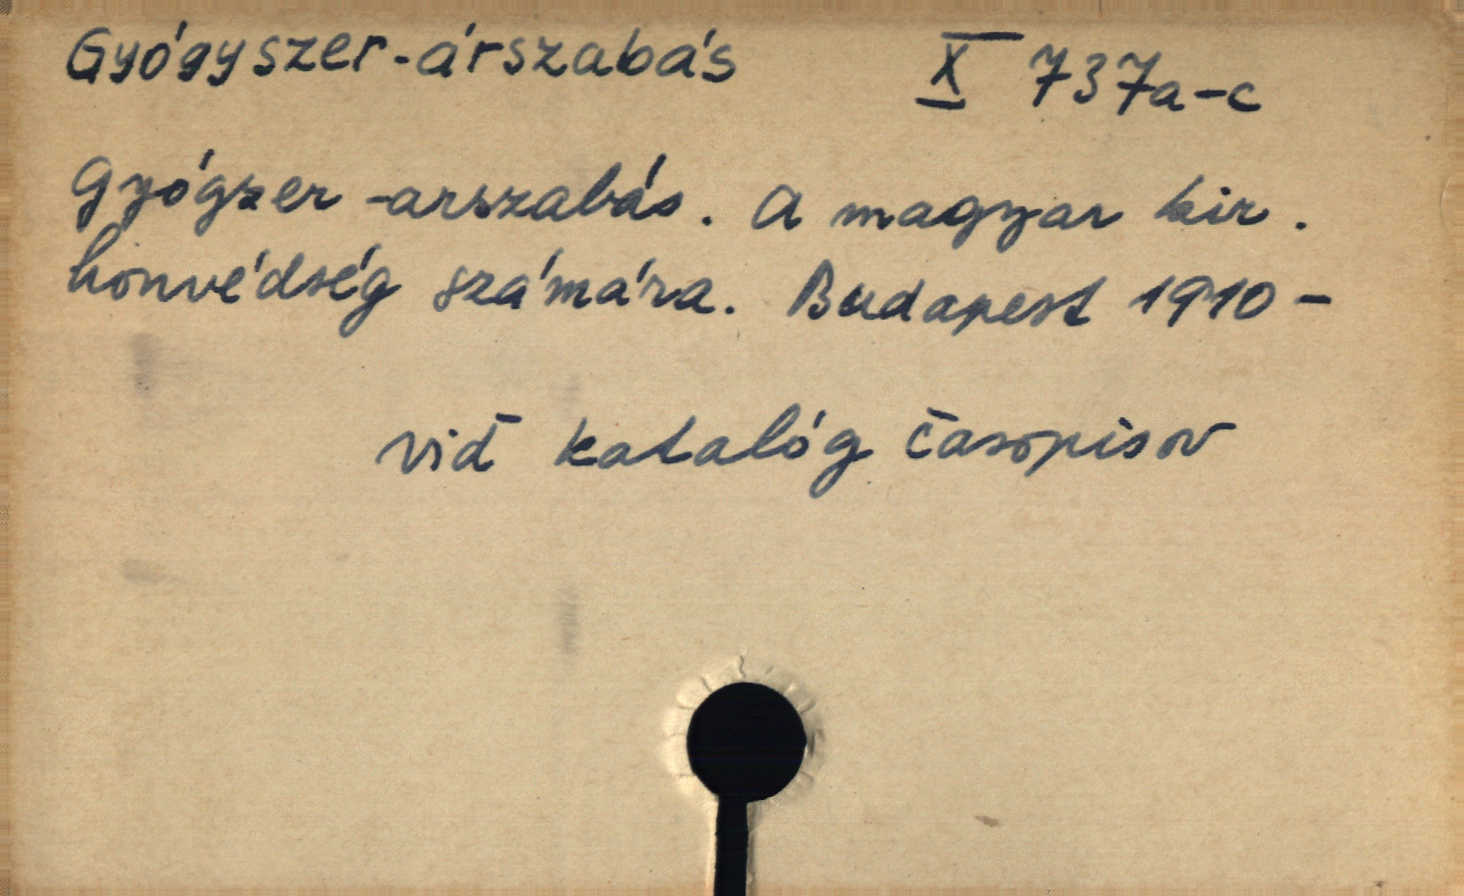 Gyógyszer-árszabás X 737a-c
Gyógszer-arszabás. A magyar kir.
honvédség számára. Budapest 1910-
viď katalóg časopisov